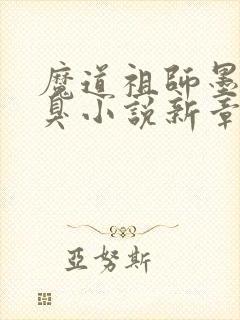 魔道祖師墨
臭小說新章
亞努斯